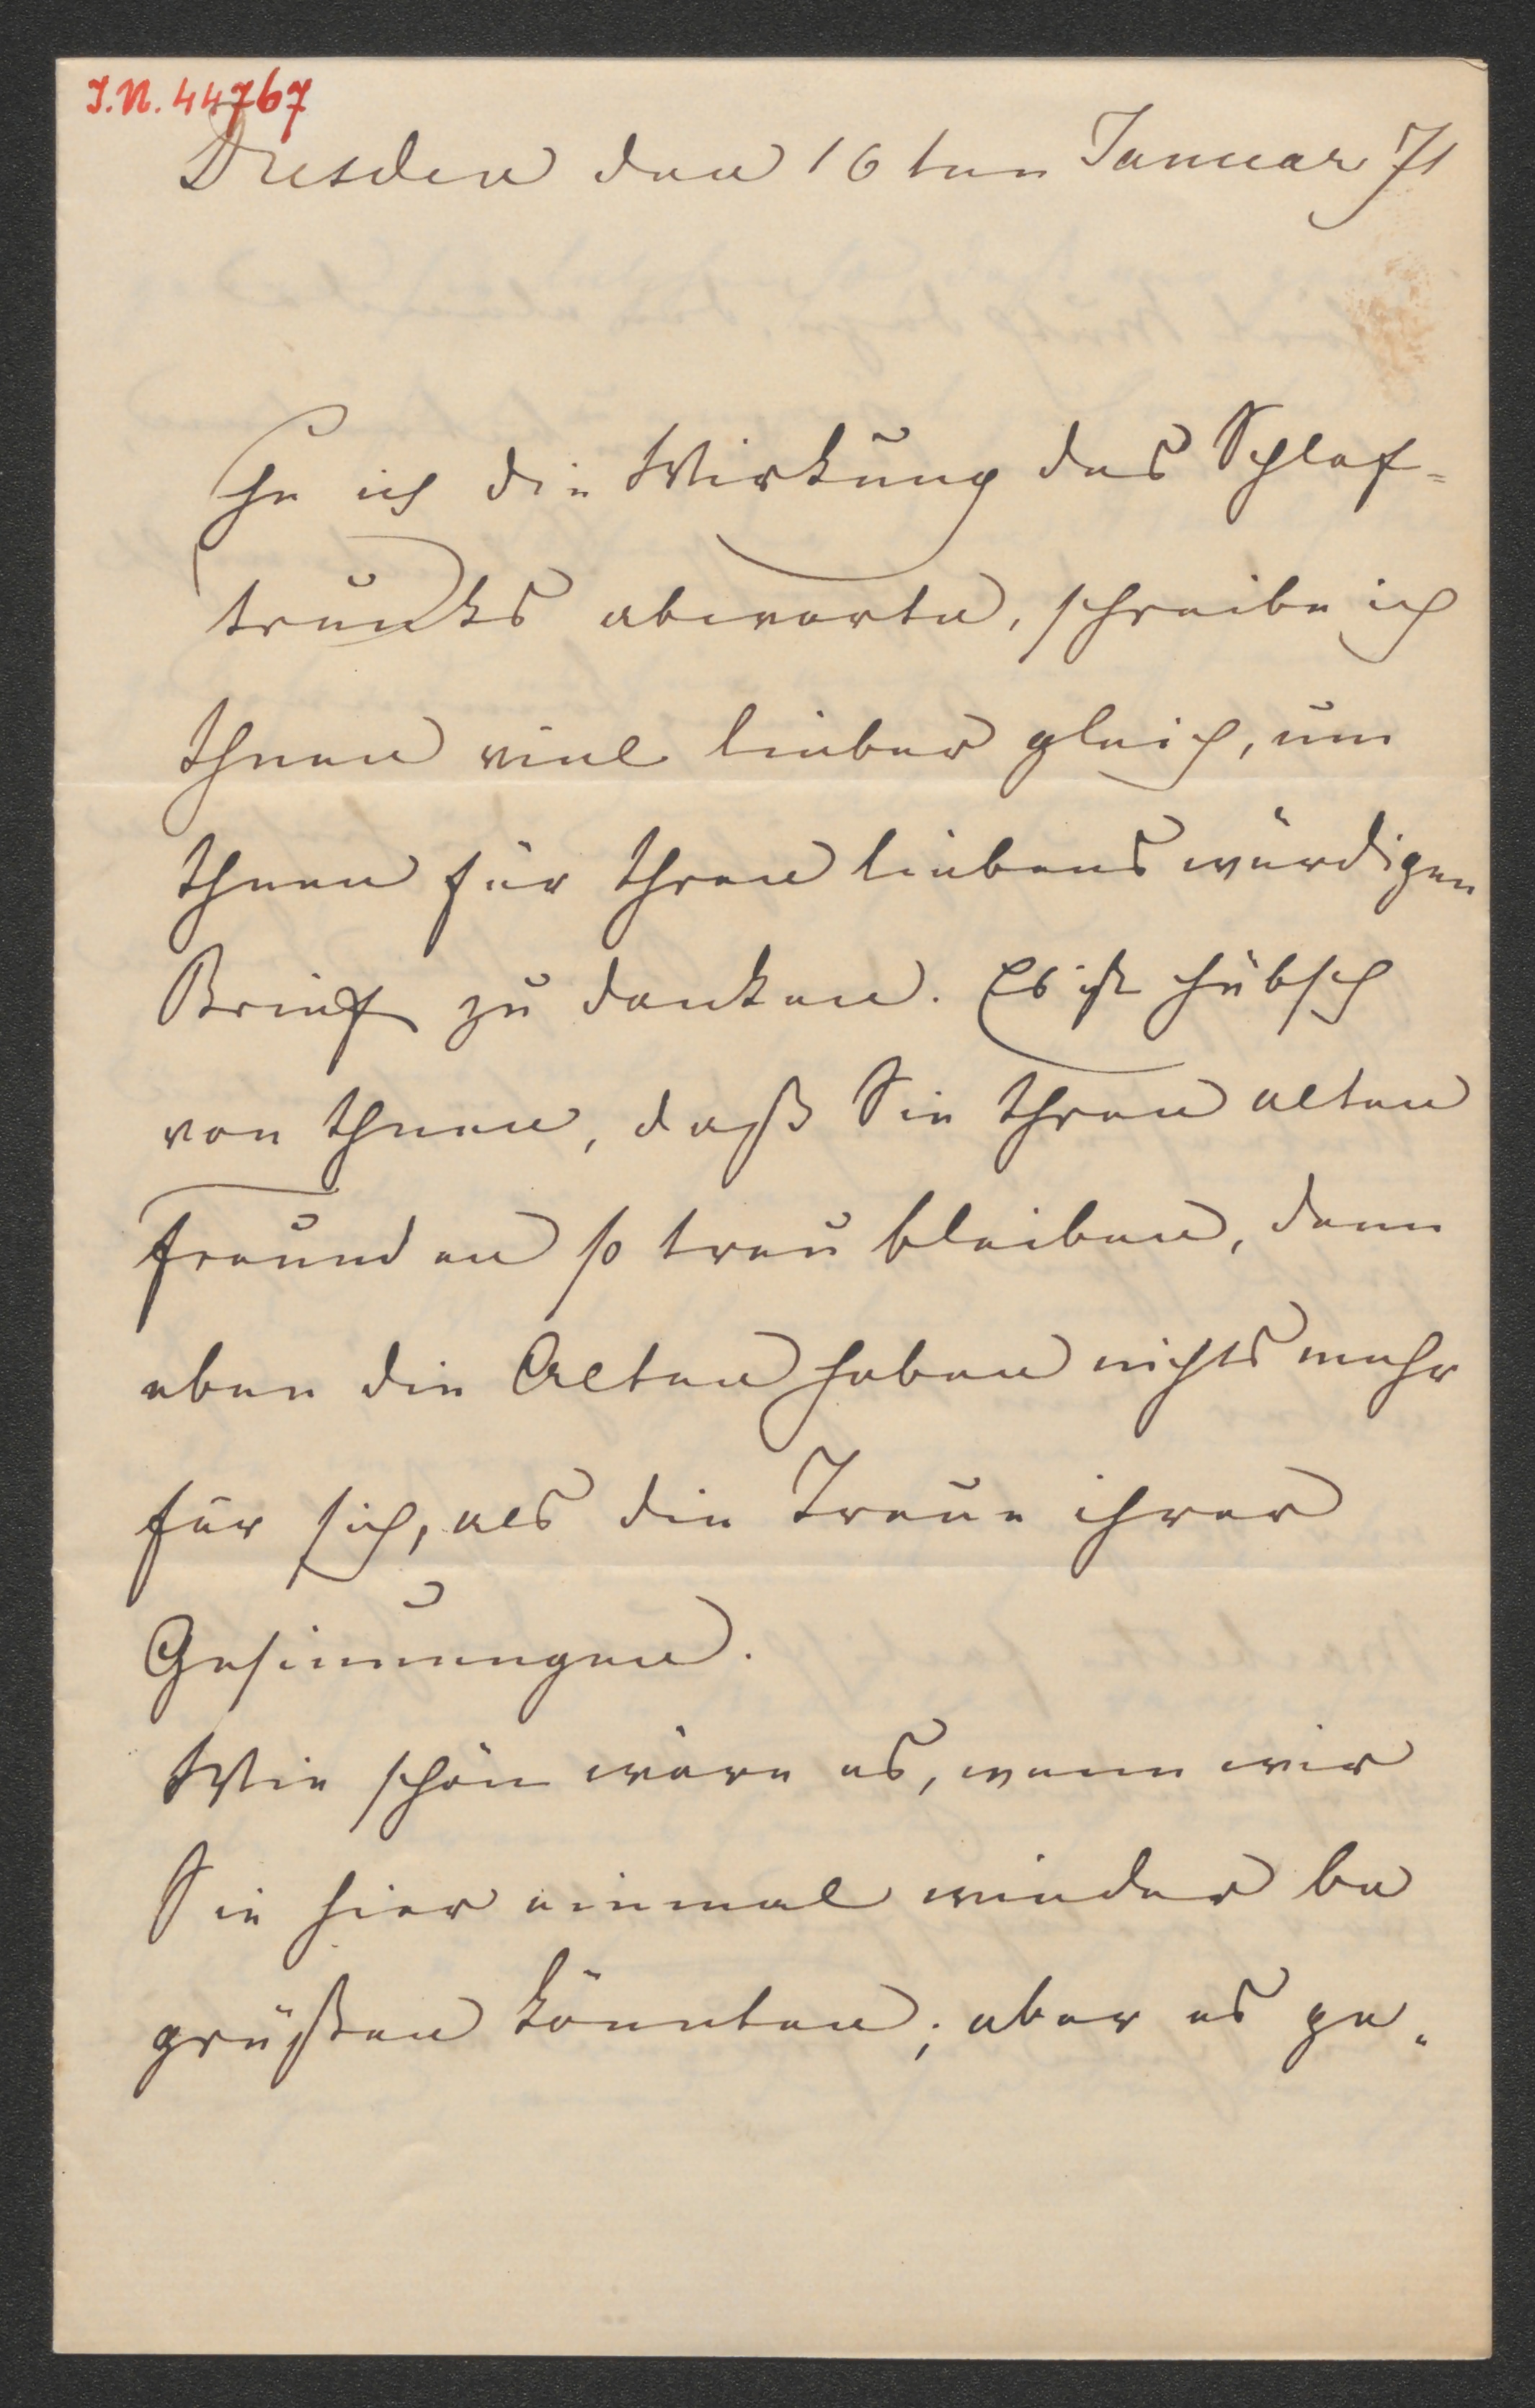 I.N. 44767
Dresden den 16ten Januar 71
Ehe ich die Wirkung des Schlaf=
trunks abwarte, schreibe ich
Ihnen viel lieber gleich, um
Ihnen für Ihren liebenswürdigen
Brief zu danken. Es ist hübsch
von Ihnen, daß Sie Ihren alten
Freunden so treu bleiben, denn
eben die Alten haben nichts mehr
für sich, als die Treue ihrer
Gesinnungen.
Wie schön wäre es, wenn wir
Sie hier einmal wieder be
grüßen könnten; aber es ge=